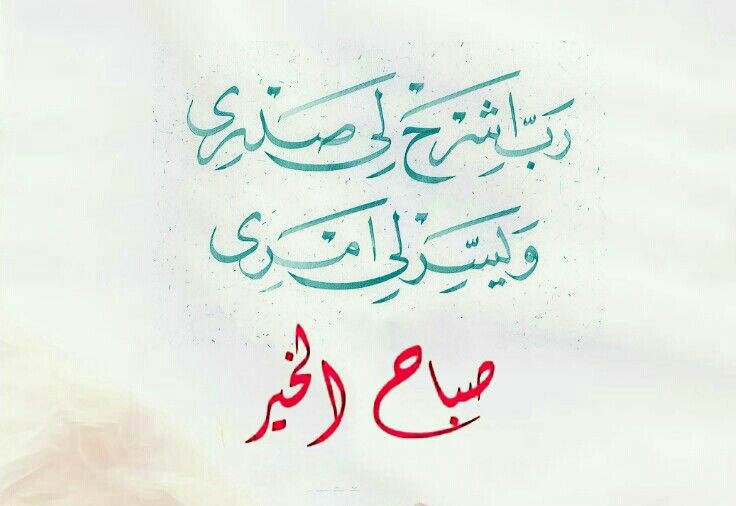 رَبِّ اشْرَحْ لِي صَدْرِي
وَيَسِّرْ لِي امْرِي
صباح الخير